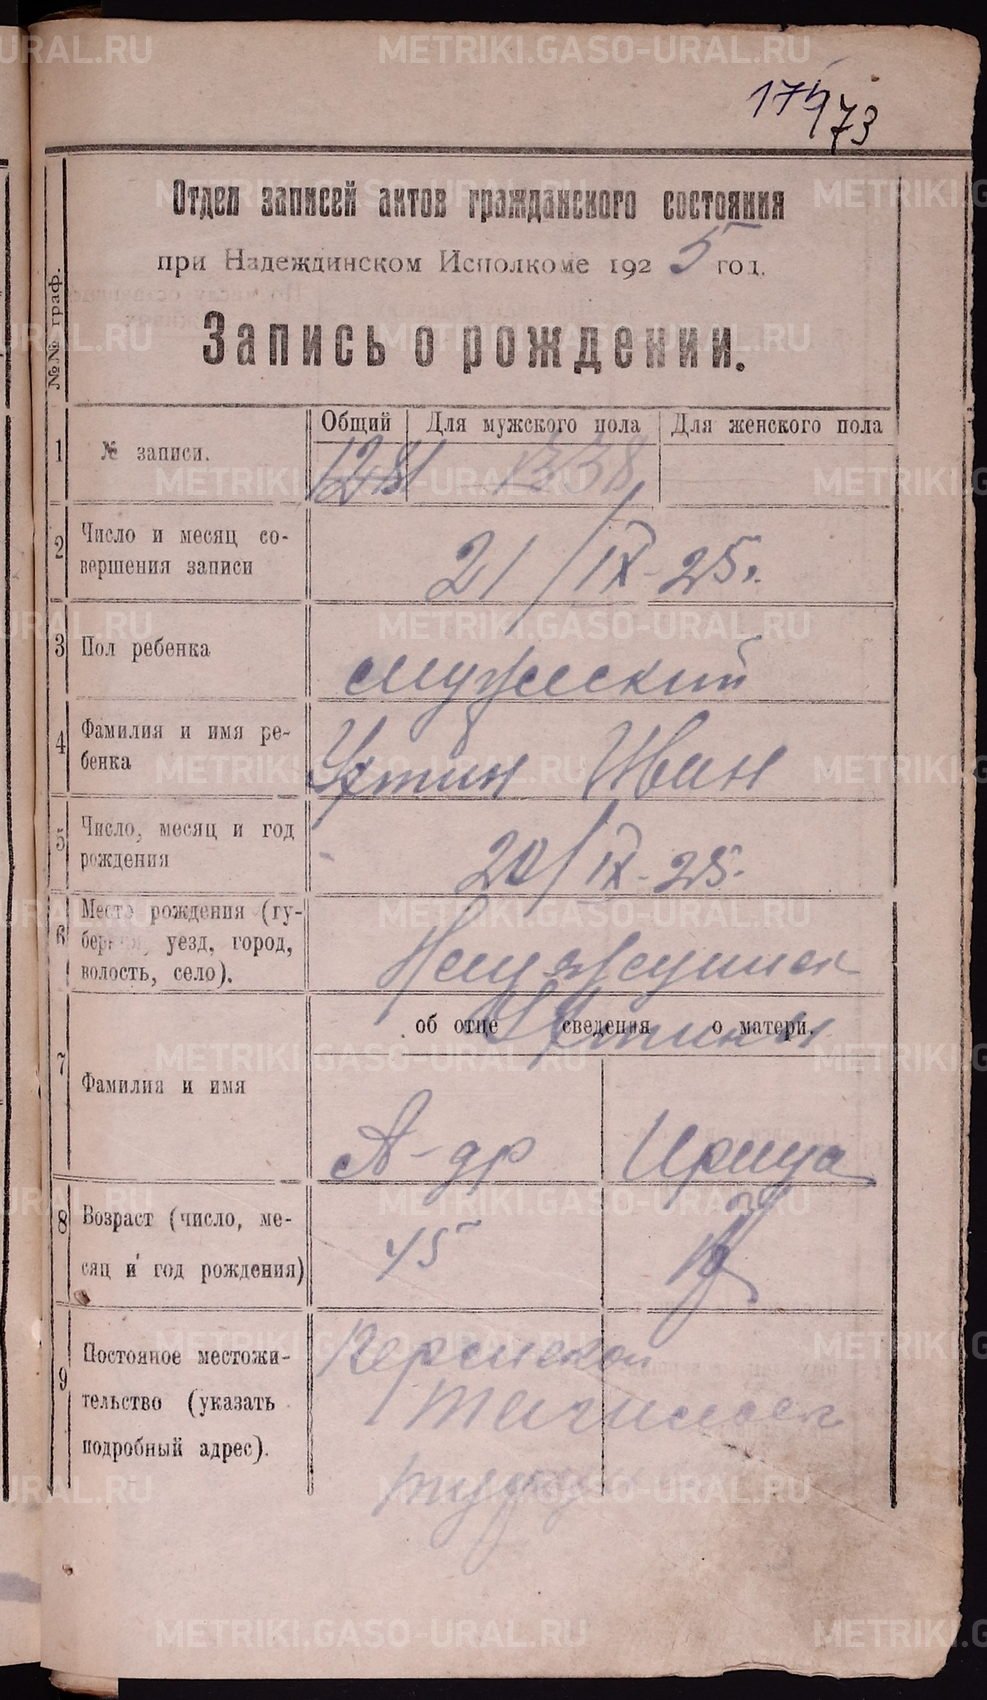 METRIKI.GASO-URAL.RU
173
Отдел записей актов гражданского состояния
при Надеждинском Исполкоме 1925 год.
Запись о рождении.
№№ граф.
Общий Для мужского пола Для женского пола
1 № записи. 1281 1338
2 Число и месяц со-
вершения записи 21/IX-25г.
3 Пол ребенка мужской
4 Фамилия и имя ре-
бенка Устин Иван
5 Число, месяц и год
рождения 20/IX-25.
6 Место рождения (гу-
берния, уезд, город,
волость, село).
об отце сведения о матери.
7 Фамилия и имя А-др Ирица
8 Возраст (число, ме-
сяц и год рождения) 45
9 Постояное местожи-
тельство (указать
подробный адрес).